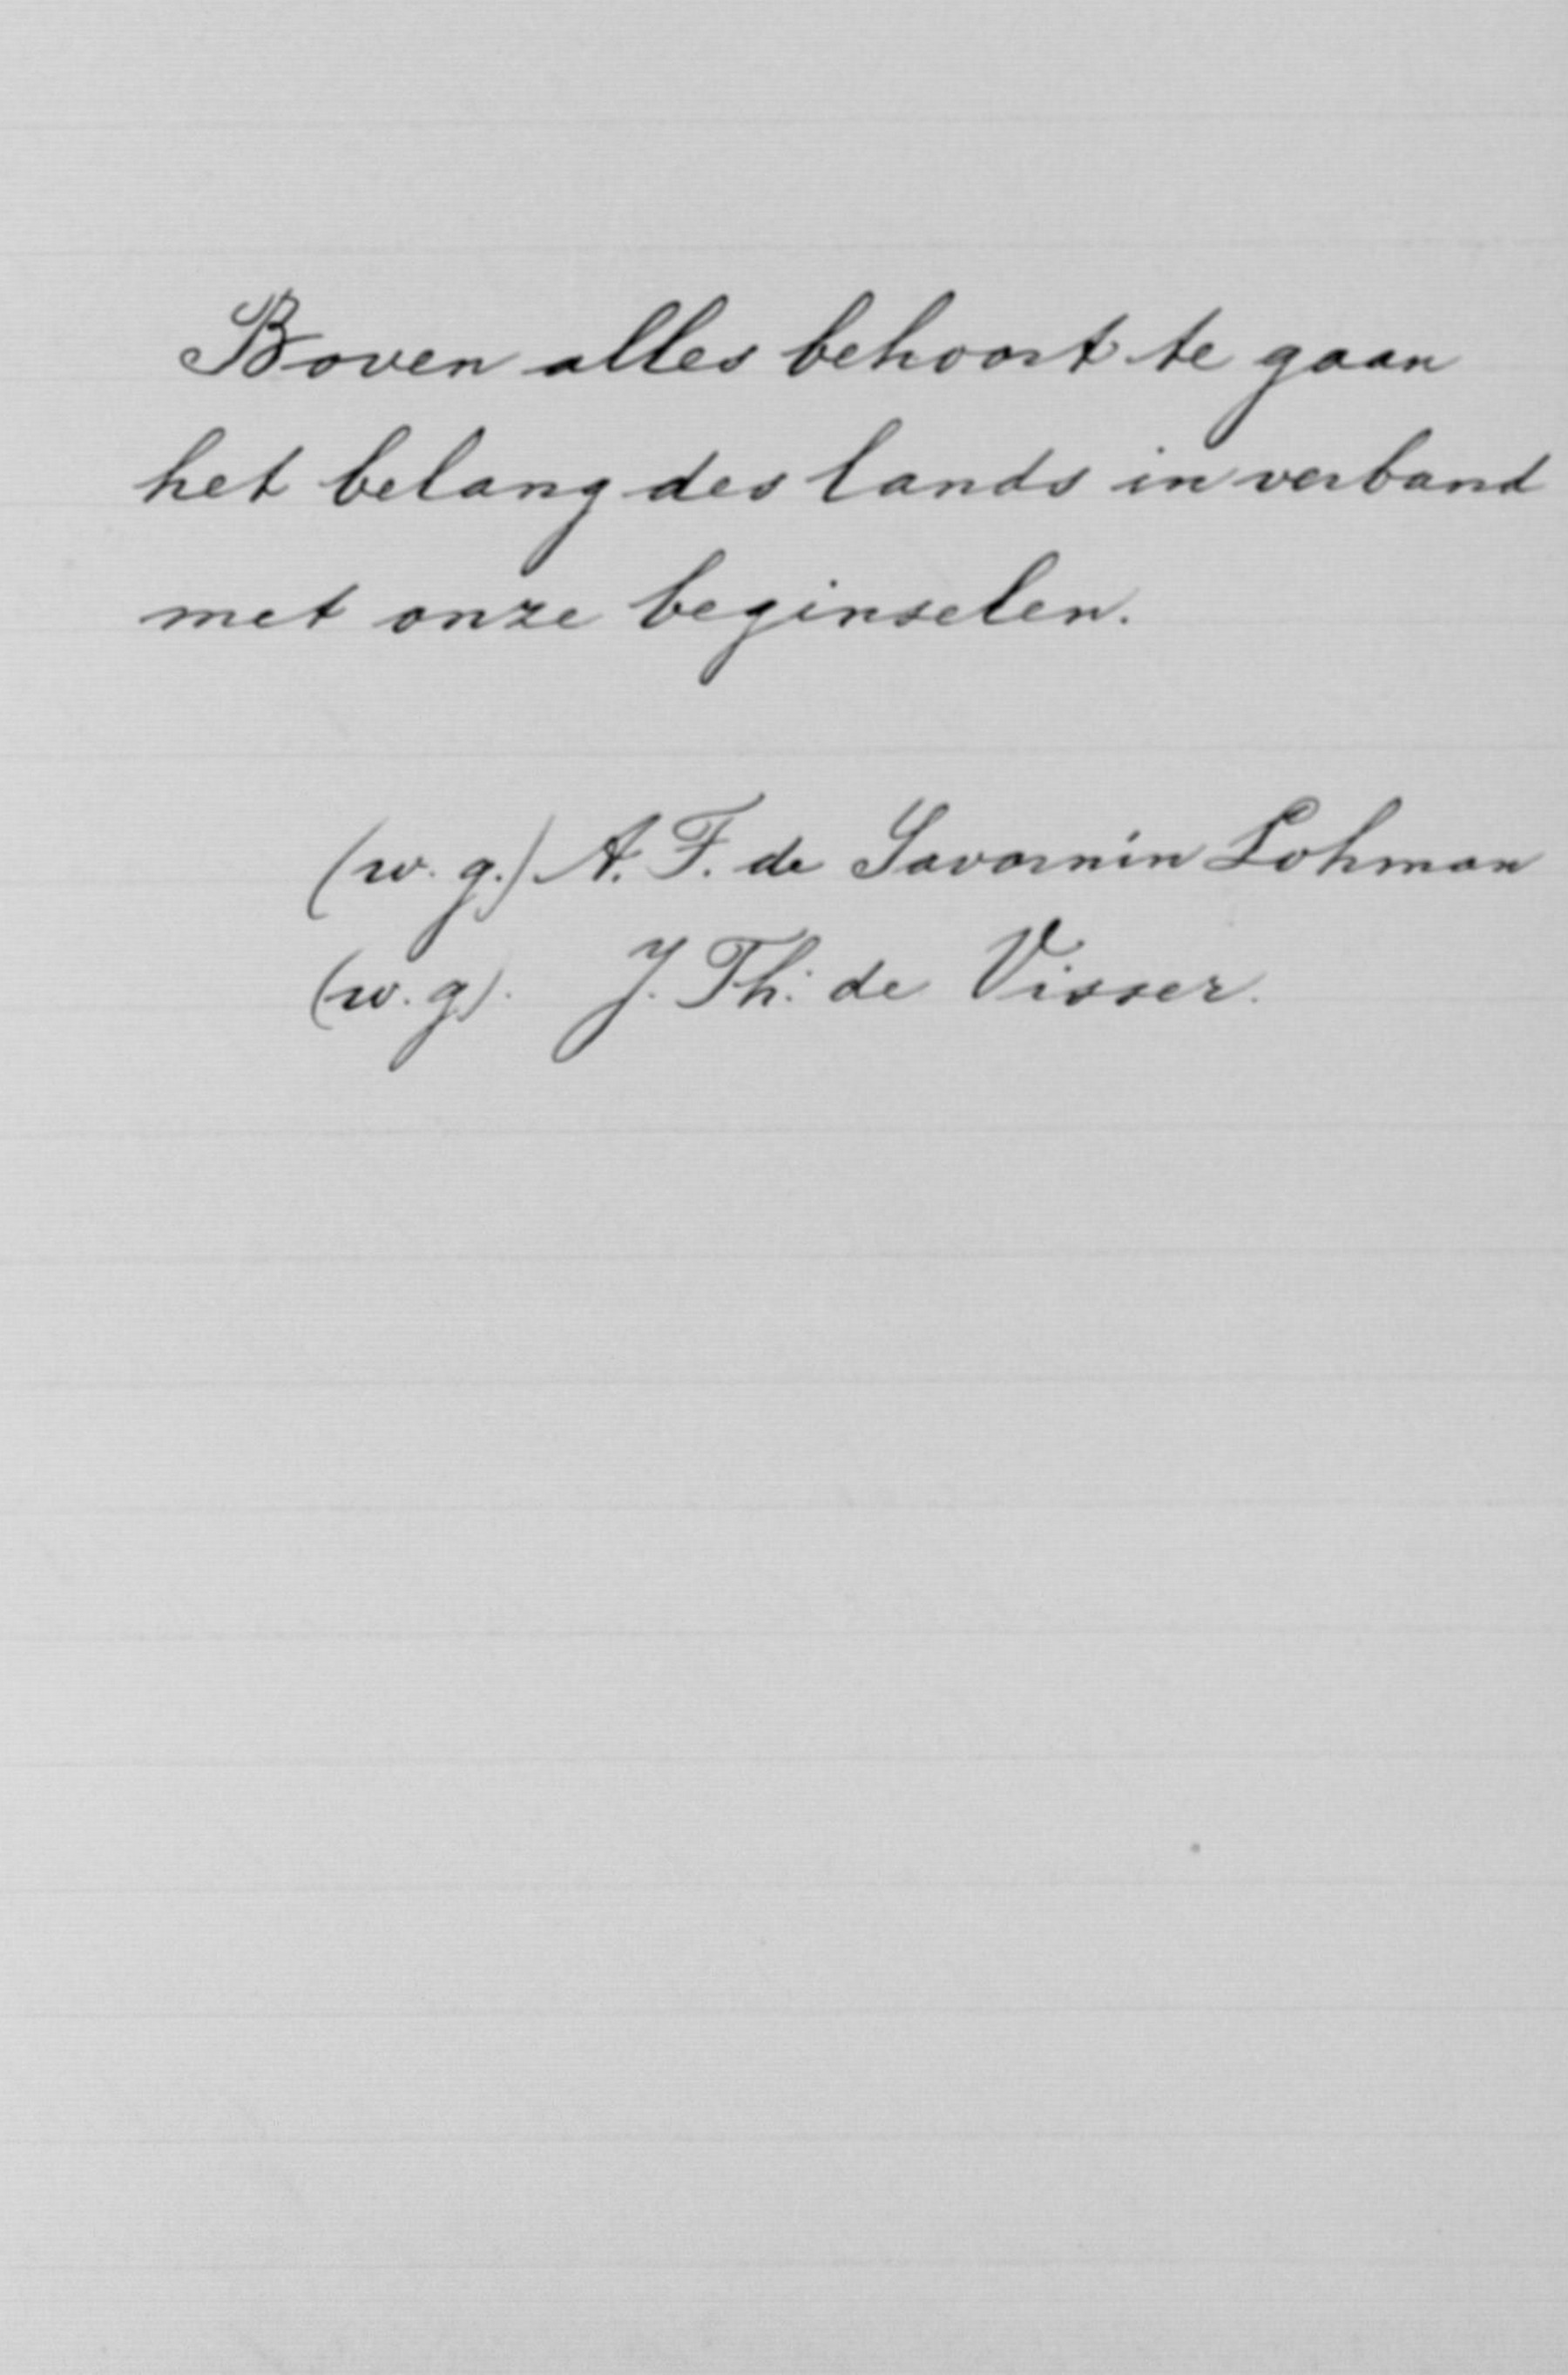 Boven alles behoort te gaan
het belang des lands in verband
met onze beginselen.
(w. g.) A. F. de Savornin Lohman
(w. g). J. Th: de Visser.